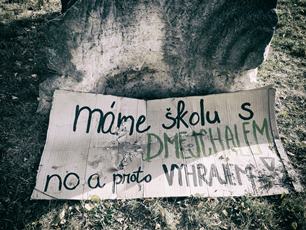 máme školu s
DMEJCHALEM
no a proto VYHRAJEM